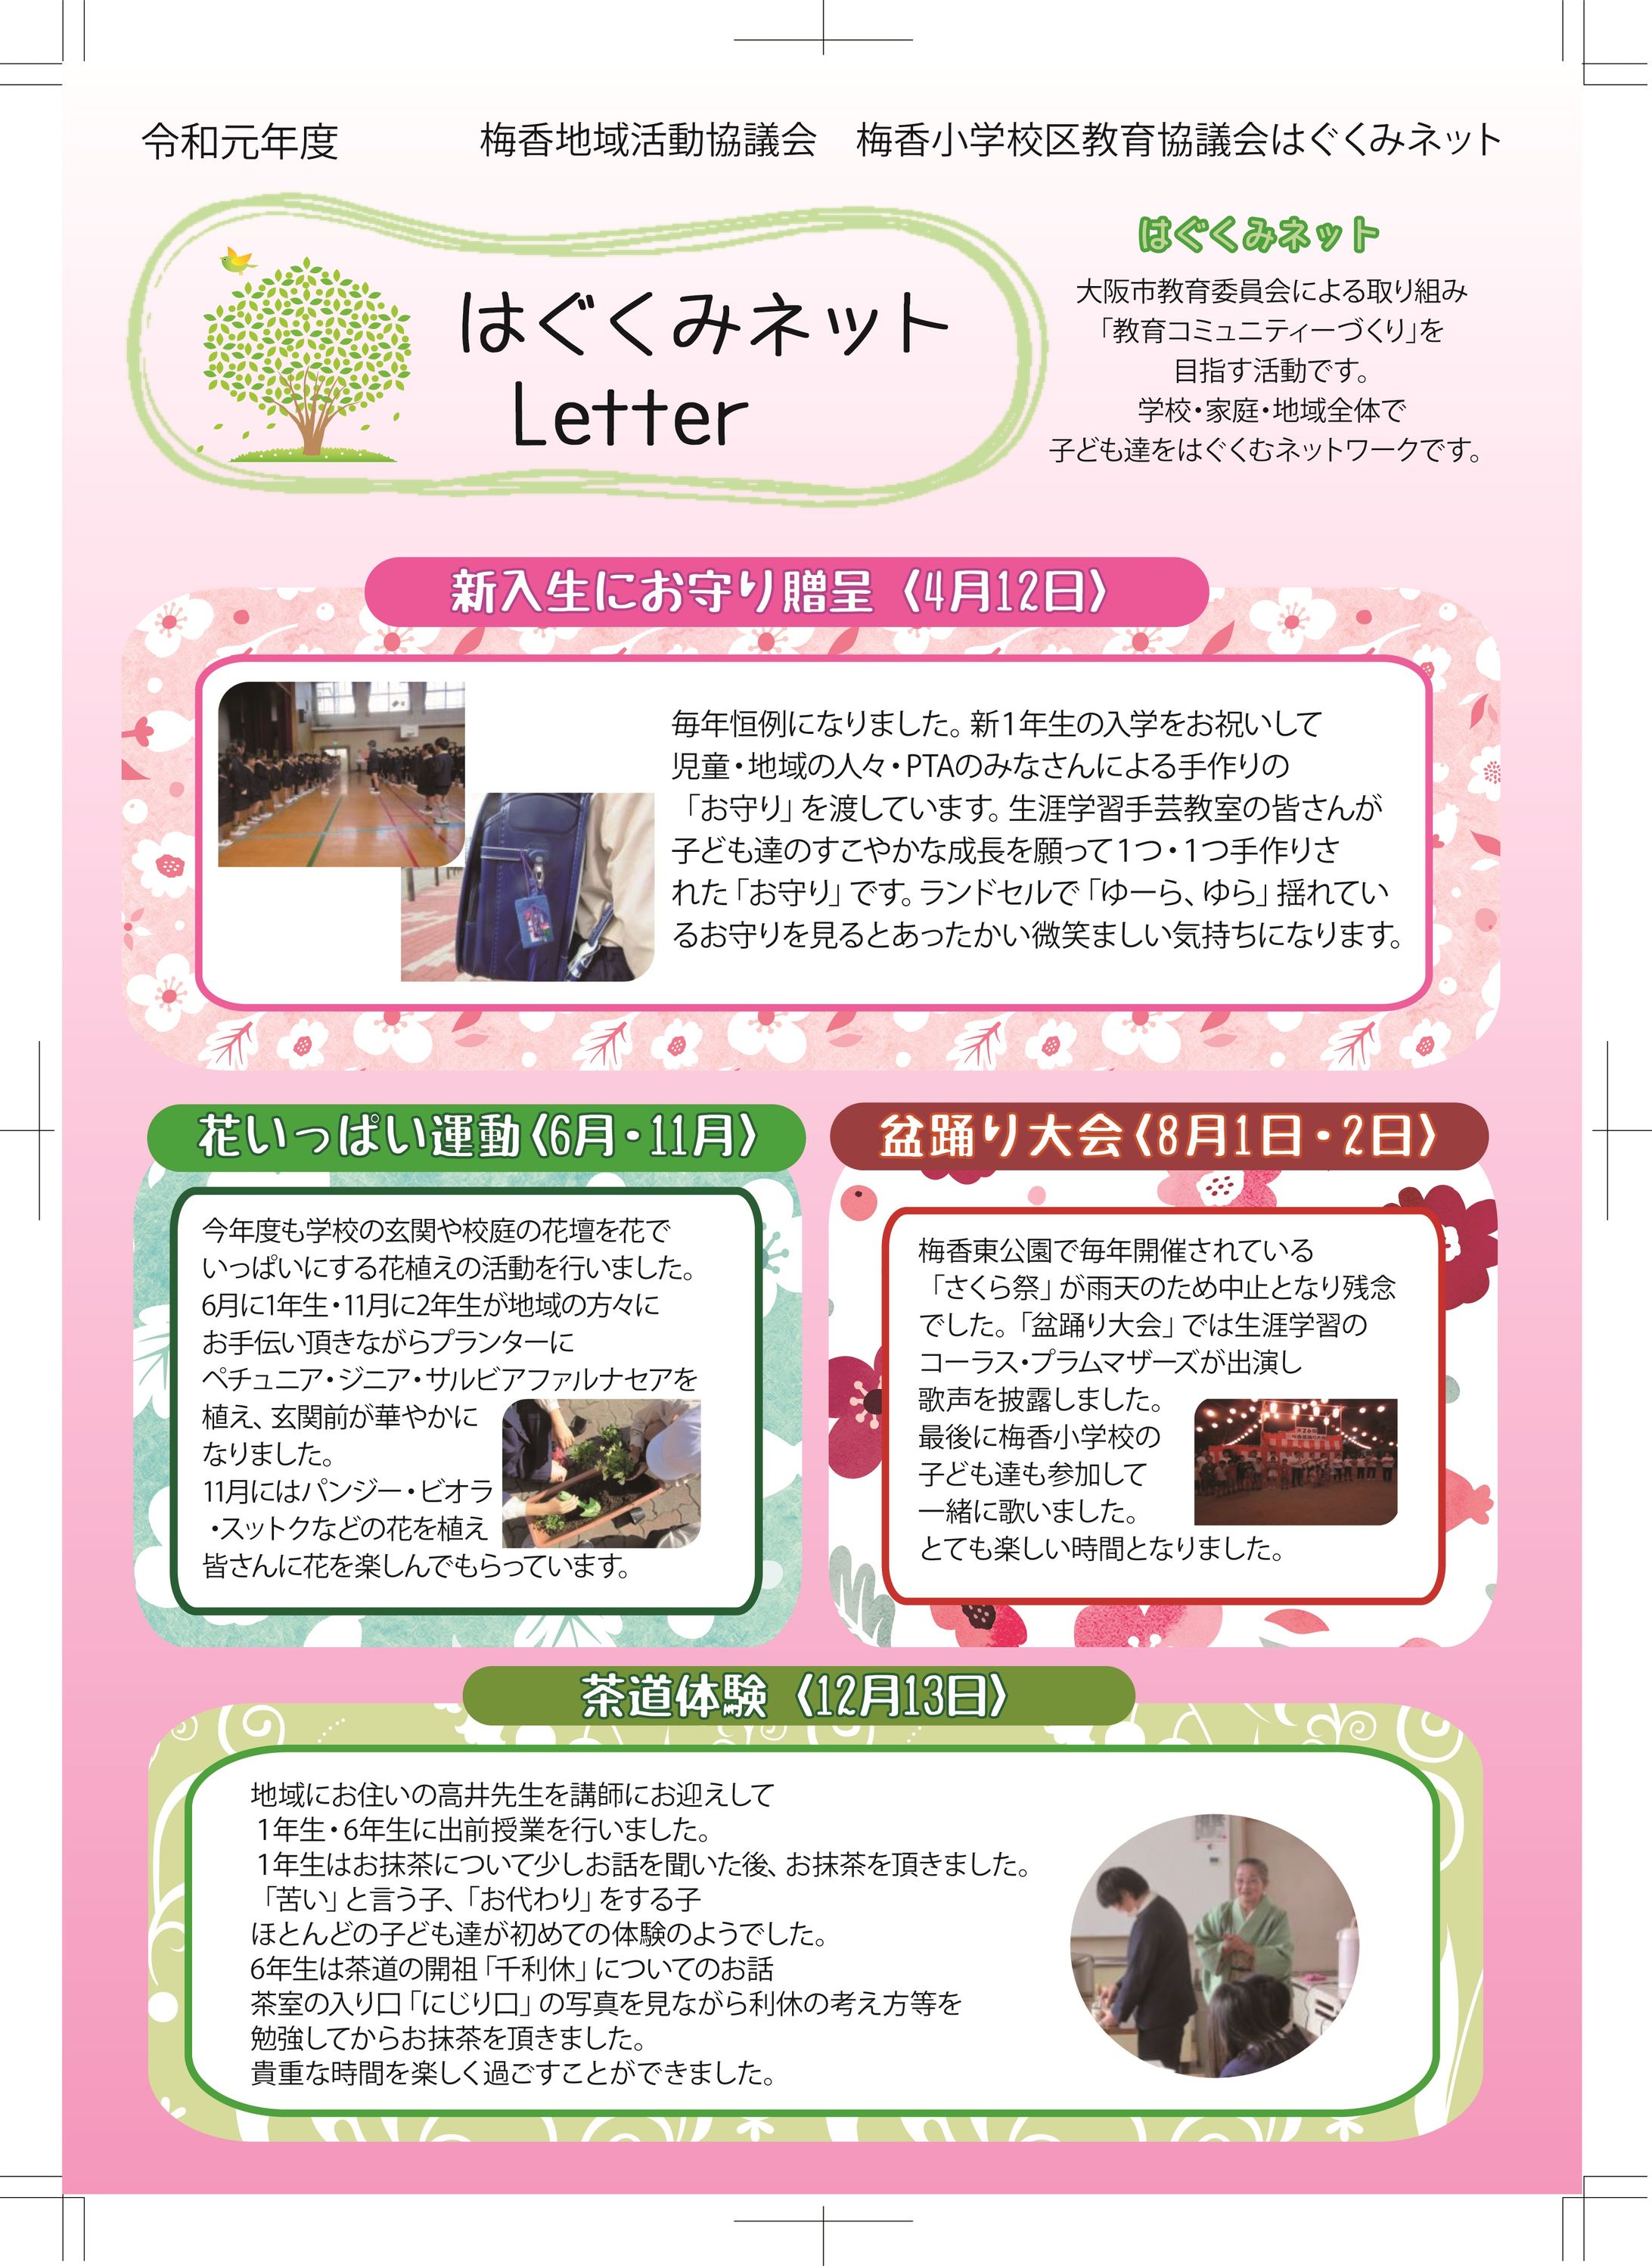 令和元年度　梅香地域活動協議会　梅香小学校区教育協議会はぐくみネット
はぐくみネット
Letter
はぐくみネット
大阪市教育委員会による取り組み
「教育コミュニティーづくり」を
目指す活動です。
学校・家庭・地域全体で
子ども達をはぐくむネットワークです。
新入生にお守り贈呈〈4月12日〉
毎年恒例になりました。新1年生の入学をお祝いして
児童・地域の人々・PTAのみなさんによる手作りの
「お守り」を渡しています。生涯学習手芸教室の皆さんが
子ども達のすこやかな成長を願って1つ・1つ手作りさ
れた「お守り」です。ランドセルで「ゆーら、ゆら」揺れてい
るお守りを見るとあったかい微笑ましい気持ちになります。
花いっぱい運動〈6月・11月〉
今年度も学校の玄関や校庭の花壇を花で
いっぱいにする花植えの活動を行いました。
6月に1年生・11月に2年生が地域の方々に
お手伝い頂きながらプランターに
ペチュニア・ジニア・サルビアファルナセアを
植え、玄関前が華やかに
なりました。
11月にはパンジー・ビオラ
・スットクなどの花を植え
皆さんに花を楽しんでもらっています。
盆踊り大会〈8月1日・2日〉
梅香東公園で毎年開催されている
「さくら祭」が雨天のため中止となり残念
でした。「盆踊り大会」では生涯学習の
コーラス・プラムマザーズが出演し
歌声を披露しました。
最後に梅香小学校の
子ども達も参加して
一緒に歌いました。
とても楽しい時間となりました。
茶道体験〈12月13日〉
地域にお住いの高井先生を講師にお迎えして
1年生・6年生に出前授業を行いました。
1年生はお抹茶について少しお話を聞いた後、お抹茶を頂きました。
「苦い」と言う子、「お代わり」をする子
ほとんどの子ども達が初めての体験のようでした。
6年生は茶道の開祖「千利休」についてのお話
茶室の入り口「にじり口」の写真を見ながら利休の考え方等を
勉強してからお抹茶を頂きました。
貴重な時間を楽しく過ごすことができました。